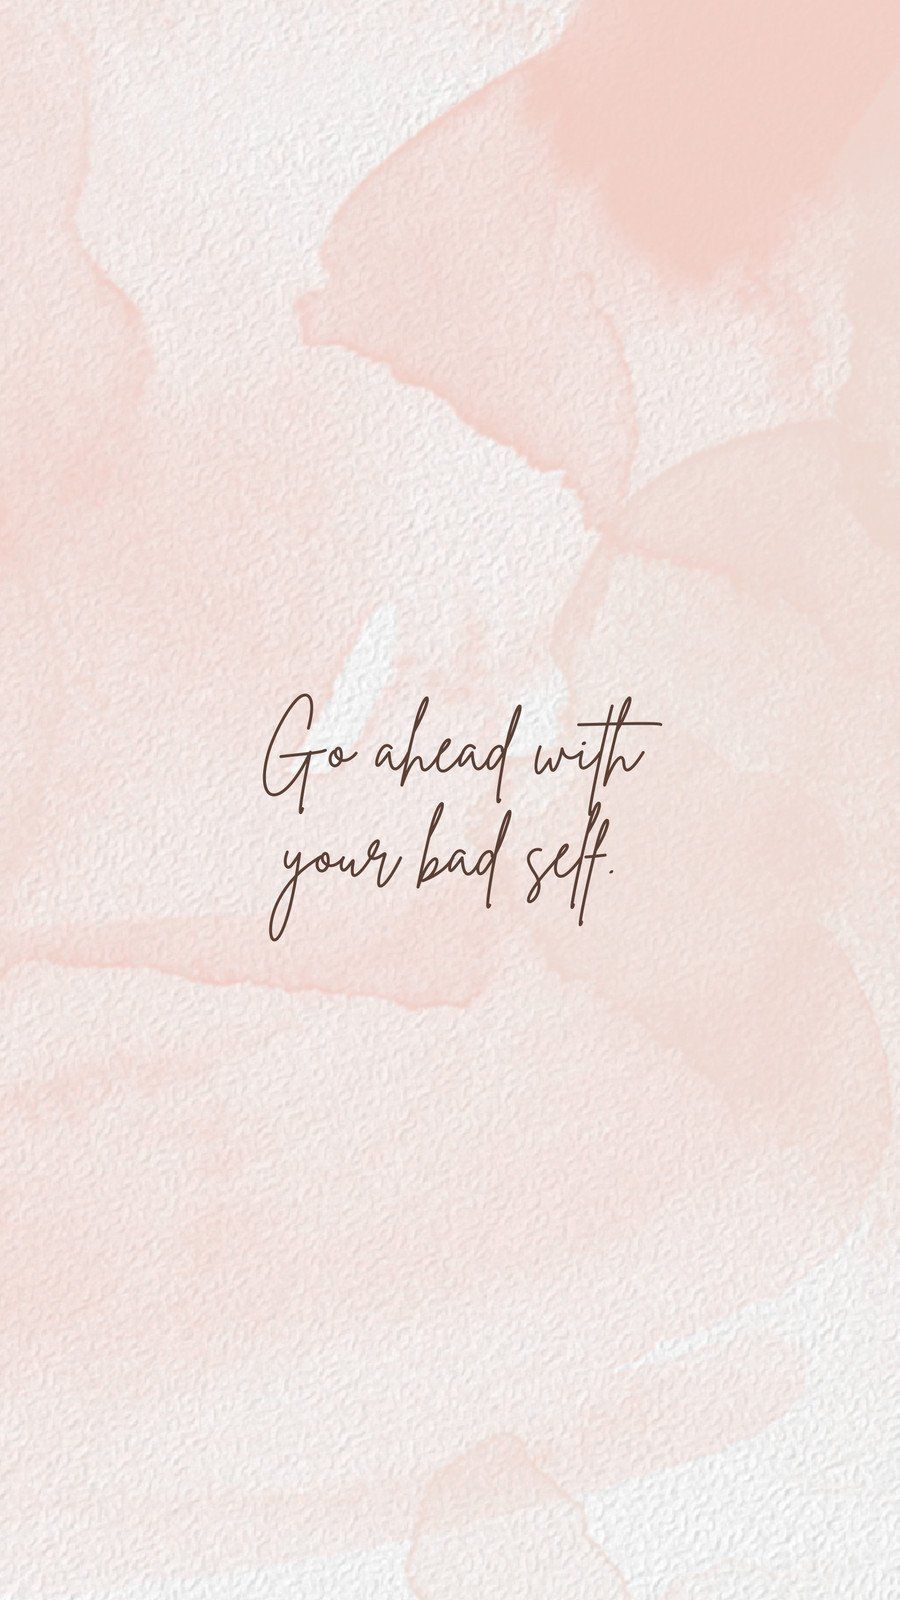 Go ahead with
your bad self.